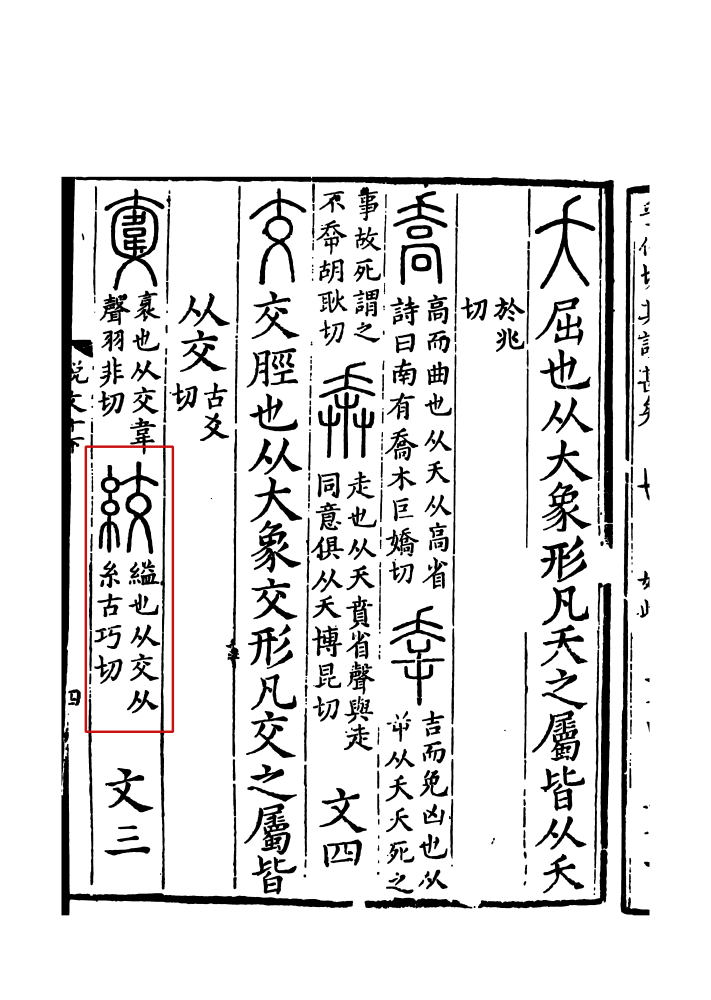 夭屈也从大象形凡夭之屬皆从夭
於兆
切
喬
高而曲也从夭从高省
詩曰南有喬木巨嬌切
幸
吉而免凶也从
屰从夭夭死之
事故死謂之
不幸胡耿切
奔
走也从夭賁省聲與走
同意俱从夭博昆切
文四
交交脛也从大象交形凡交之屬皆
从交
古爻
切
𡕢
褱也从交韋
聲羽非切
絞
縊也从交从
糸古巧切
文三
說文十下
四